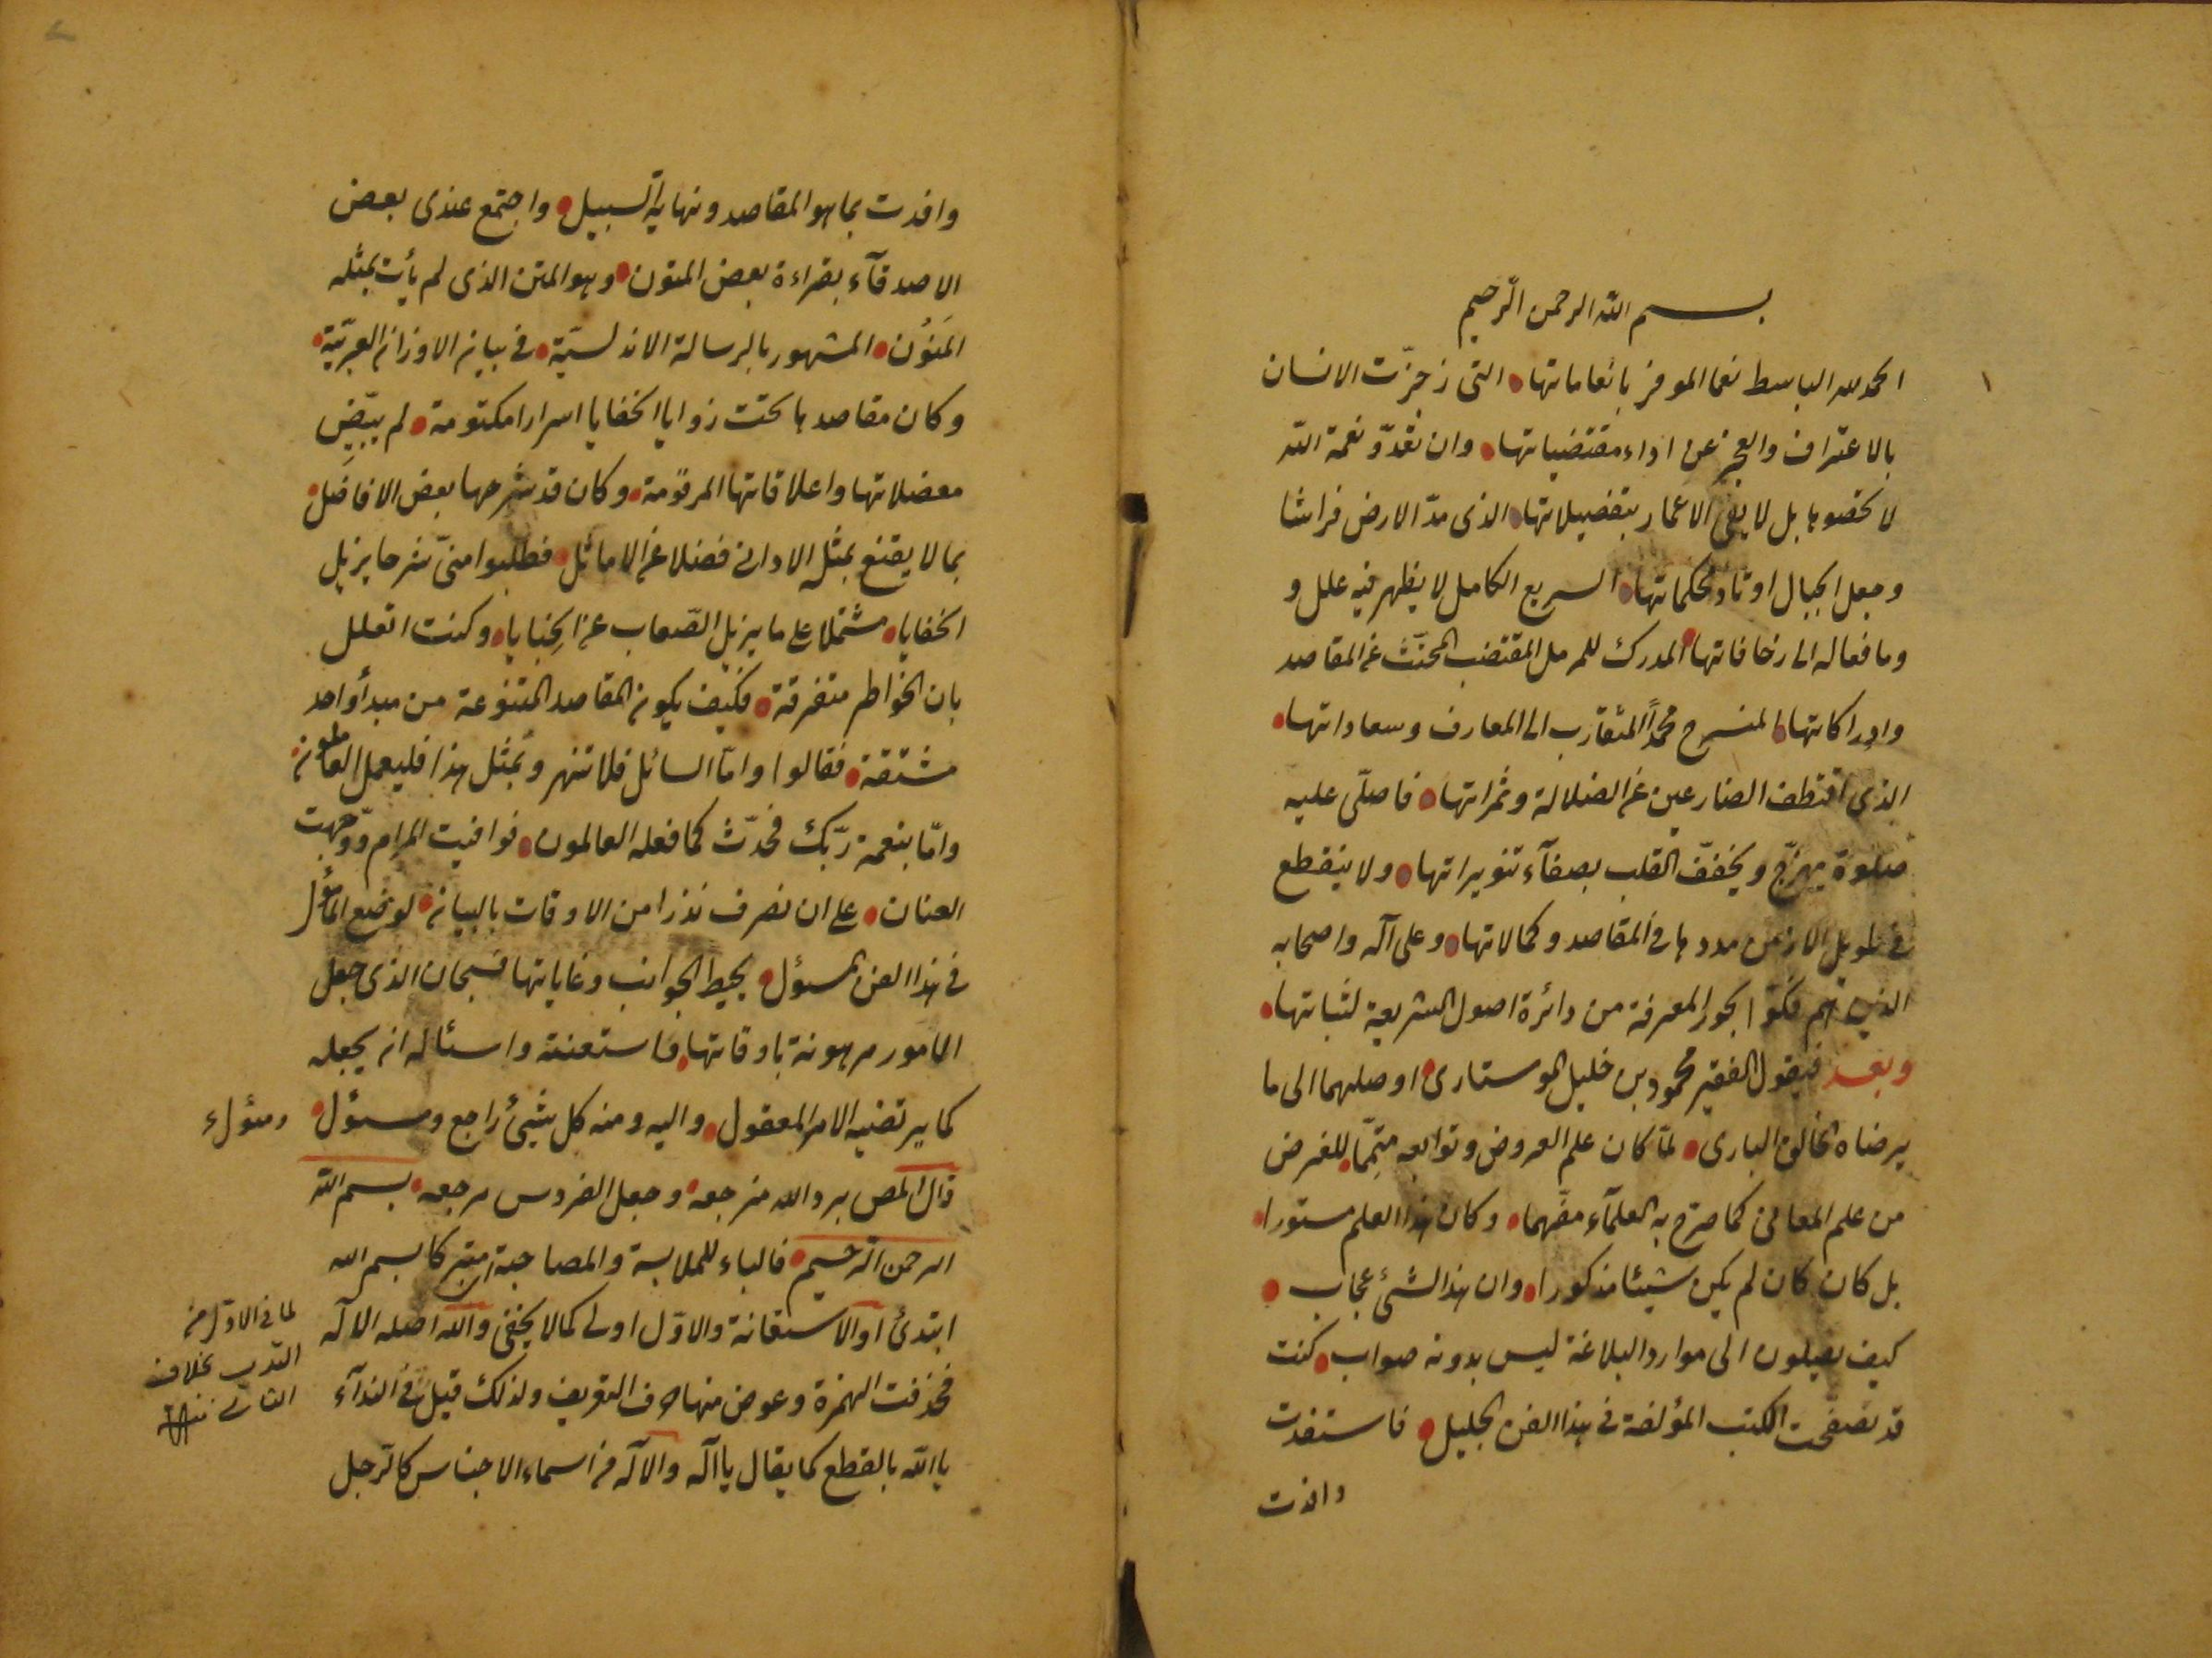 بسم الله الرحمن الرحيم
الحمد لله الباسط نعما الموفر بانعاماتها التى زجزت الانسان
بالاعتراف والعجز عن اداء مقتضياتها وان تعدّو نعمة الله
لا تحصوها بل لا يفى الاعمار بتفصيلاتها الذى مدّ الارض فراشا
وجعل الجبال اوتاد محكماتها السريع الكامل لا يظهر فيه علل و
وما فعاله الى زخافاتها المدرك للرمل المقتضب المجتثّ عن المقاصد
وادراكاتها المنسرح محمدا المتقارب الى المعارف وسعاداتها
الذى اقتطف الضارعين عن الضلالة وثمراتها فاصلّى عليه
صلوة يهزّج ويخفّف القلب بصفآء تنويراتها ولا ينقطع
فى طويل الازمن مددها فى المقاصد وكمالاتها وعلى آله واصحابه
الذين هم فكّوا بحور المعرفة من دائرة اصول الشريعة لثباتها
وبعد فيقول الفقير محمود بن خليل الموستارى اوصلهما الى ما
يرضاه الخالق البارى لمّا كان علم العروض وتوابعه متمّما للغرض
من علم المعانى كما صرّح به العلمآء مفهما وكان هذا العلم مستورا
بل كان كان لم يكن شيئا مذكورا وان هذا لشئ عجاب
كيف يصلون الى موارد البلاغة ليس بدونه صواب كنت
قد تصفحت الكتب المؤلفة فى هذا الفن الجليل فاستفدت
وافدت
وافدت بما هو المقاصد ونهاية السبيل واجتمع عندى بعض
الاصدقآء بقراءة بعض المتون وهو المتن الذى لم يأت بمثله
المَنُون المشهور بالرسالة الاندلسيّة فى بيان الاوزان العربيّة
وكان مقاصدها تحت زوايا الخفايا اسرارا مكتومة لم يبيّض
معضلاتها واعلاقاتها المرقومة وكان قد شرحها بعض الافاضل
بما لا يقنع بمثله الادانى فضلا عن الاماثل فطلبوا منّى شرحا يزيل
الخفايا مشتملا على ما يزيل الصّعاب عن الخبايا وكنت اتعلل
بان الخواطر متفرقة فكيف يكون المقاصد المتنوعة من مبدأ واحد
مشتقة فقالوا وامّا السائل فلا تنهر وبمثل هذا فليعمل العاملون
وامّا بنعمة ربّك فحدّث كما فعله العالمون فوافيت المرام ووجّهت
العنان على ان نصرف نذرا من الاوقات بالبيان لوضع المأمول
فى هذا الفن المسؤل يحيط الجوانب وغاياتها فسبحان الذى جعل
الامور مرهونة باوقاتها فاستعنته واسئاله ان يجعله
كما يرتضيه الامر المعقول واليه ومنه كل شيئ راجع ومسؤل
ومئول
قال المص برد الله مزجعه وجعل الفردوس مرجعه بسم الله
الرحمن الرحيم فالباء للملابسة والمصاحبة اى متبركا بسم الله
ابتدئ او الاستعانة والاوّل اولى كمالا يخفى والله اصله الاله
فحذفت الهمزة وعوض منها حرف التعريف ولذلك قيل فى الندآء
ياالله بالقطع كما يقال ياآله والآله من اسماء الاجناس كالرجل
لما فى الاوّل من
التأدب بخلاف
الثانى